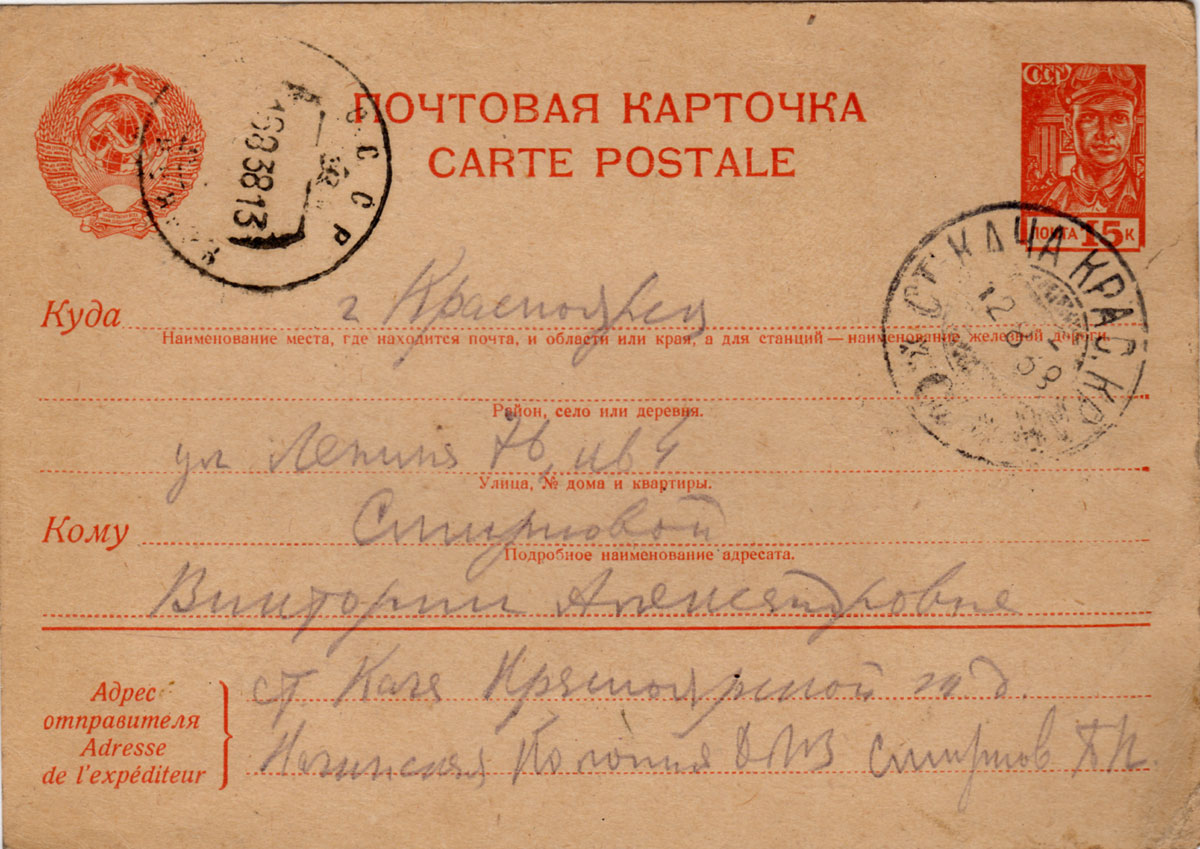 ПОЧТОВАЯ КАРТОЧКА
CARTE POSTALE
СССР
ПОЧТА 15 К
СССР
8 38 13
СТ. КАЧА КРАС. КР.
12 8 38
Куда г Красноярск
Наименование места, где находится почта, и области или края, а для станций — наименование железной дороги.
Район, село или деревня.
ул Ленина 76, кв 4
Улица, № дома и квартиры.
Кому Смирновой
Подробное наименование адресата.
Виктории Александровне
Адрес
отправителя
Adresse
de l'expéditeur
ст Кача Красноярской ж д.
Качинская Колония Смирнов